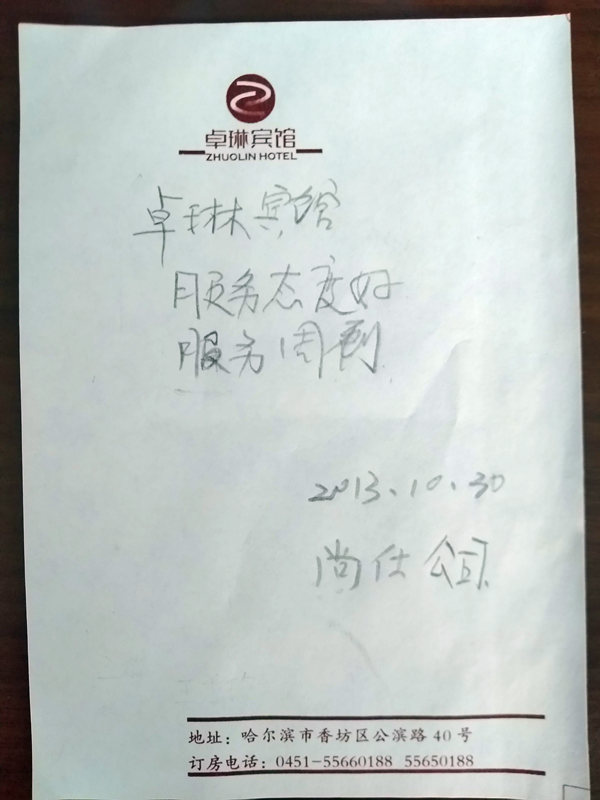 卓琳宾馆
ZHUOLIN HOTEL
卓琳宾馆
服务态度好
服务周到
2013、10、30
尚仕公司
地址：哈尔滨市香坊区公滨路 40 号
订房电话：0451-55660188 55650188